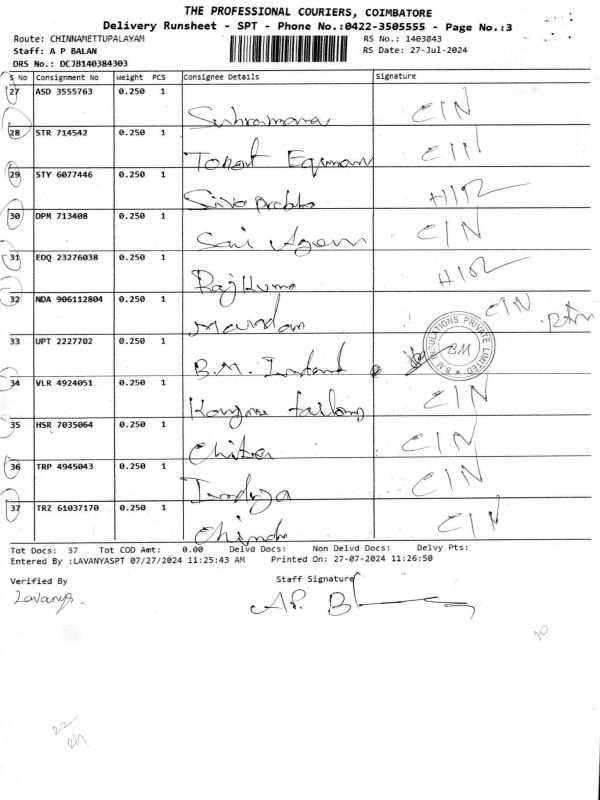 THE PROFESSIONAL COURIERS, COIMBATORE
Delivery Runsheet - SPT - Phone No.:0422-3505555 - Page No.:3
Route: CHINNAMETTUPALAYAM RS No.: 1403843
Staff: A P BALAN RS Date: 27-Jul-2024
DRS No.: DCJB140384303
S No Consignment No Weight PCS Consignee Details Signature
27 ASD 3555763 0.250 1
CIN
28 STR 714542 0.250 1
29 STY 6077446 0.250 1
30 DPM 713408 0.250 1
Sai CIN
31 EDQ 23276038 0.250 1
32 NDA 906112804 0.250 1
CIN
33 UPT 2227702 0.250 1
B.M. B.M
34 VLR 4924051 0.250 1
CIN
35 HSR 7035064 0.250 1
Chitra CIN
36 TRP 4945043 0.250 1
CIN
37 TRZ 61037170 0.250 1
CIN
Tot Docs: 37 Tot COD Amt: 0.00 Delvd Docs: Non Delvd Docs: Delvy Pts:
Entered By :LAVANYASPT 07/27/2024 11:25:43 AM Printed On: 27-07-2024 11:26:50
Verified By Staff Signature
Lavanya.
A.P. B